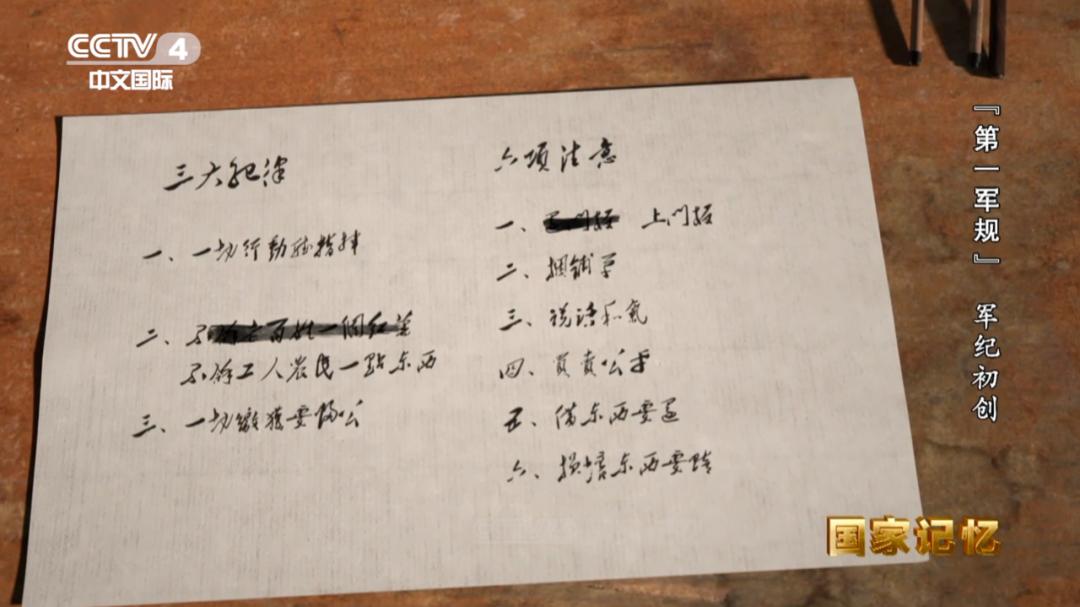 CCTV 4
中文国际
三大纪律
一、一切行动听指挥
二、不拿老百姓一個红薯
不拿工人農民一點东西
三、一切缴獲要归公
六项注意
一、上门板
二、捆铺草
三、说话和氣
四、買賣公平
五、借东西要还
六、损壞东西要赔
『第一军规』 军纪初创
国家记忆